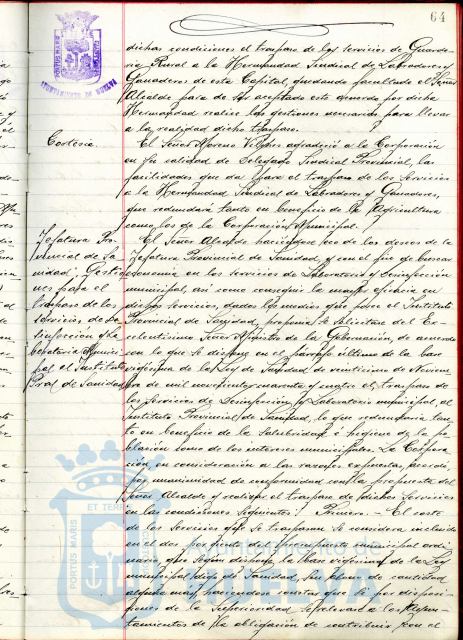 64
PORTUS MARIS
AYUNTAMIENTO DE HUELVA
dichas condiciones el traspaso de los servicios de Guarde-
ria Rural a la Hermandad Sindical de Labradores y
Ganaderos de esta Capital, quedando facultado el Señor
Alcalde para de ser aceptado este acuerdo por dicha
Hermandad realice las gestiones necesarias para llevar
a la realidad dicho traspaso.
Cortesia.
El Señor Moreno agradeció a la Corporación
en su calidad de Delegado Sindical Provincial, las
facilidades que da para el traspaso de los Servicios
a la Hermandad Sindical de Labradores y Ganaderos,
que redundará tanto en beneficio de la Agricultura
como los de la Corporación Municipal.
Jefatura Pro-
vincial de Sa-
nidad. Gestio-
nes para el
traspaso de los
servicios de De-
sinfección y La-
boratorio Munici-
pal al Instituto
Pral de Sanidad.
El Señor Alcalde haciendose eco de los deseos de la
Jefatura Provincial de Sanidad, y con el fin de buscar
economia en los servicios de Laboratorio y Desinfección
municipal, así como conseguir la mayor eficacia en
dichos servicios, dados los medios que posee el Instituto
Provincial de Sanidad, propone se solicitase del Ex-
celentisimo Señor Ministro de la Gobernación, de acuerdo
con lo que se dispone en el párrafo último de la base
vigésima de la Ley de Sanidad de veinticinco de Noviem-
bre de mil novecientos cuarenta y cuatro el traspaso de
los Servicios de Desinfección y Laboratorio municipal, al
Instituto Provincial de Sanidad, lo que redundaria tan-
to en beneficio de la salubridad é higiene de la po-
blación como de los intereses municipales. La Corpora-
ción, en consideración a las razones expuestas, acordó
por unanimidad de conformidad con la propuesta del
Señor Alcalde y realizar el traspaso de dichos Servicios
en las condiciones siguientes: Primero. - El costo
de los Servicios que se traspasan se considera incluido
en el dos por ciento del Presupuesto municipal ordi-
nario que segun dispone la base vigésima de la Ley
municipal de Sanidad, sin abono de cantidad
alguna mas, haciendose constar que si por disposi-
ciones de la Superioridad se relevara a los Ayun-
tamientos de la obligación de contribuir con el
PORTUS MARIS
ET TERRE
Ayuntamiento de
HUELVA